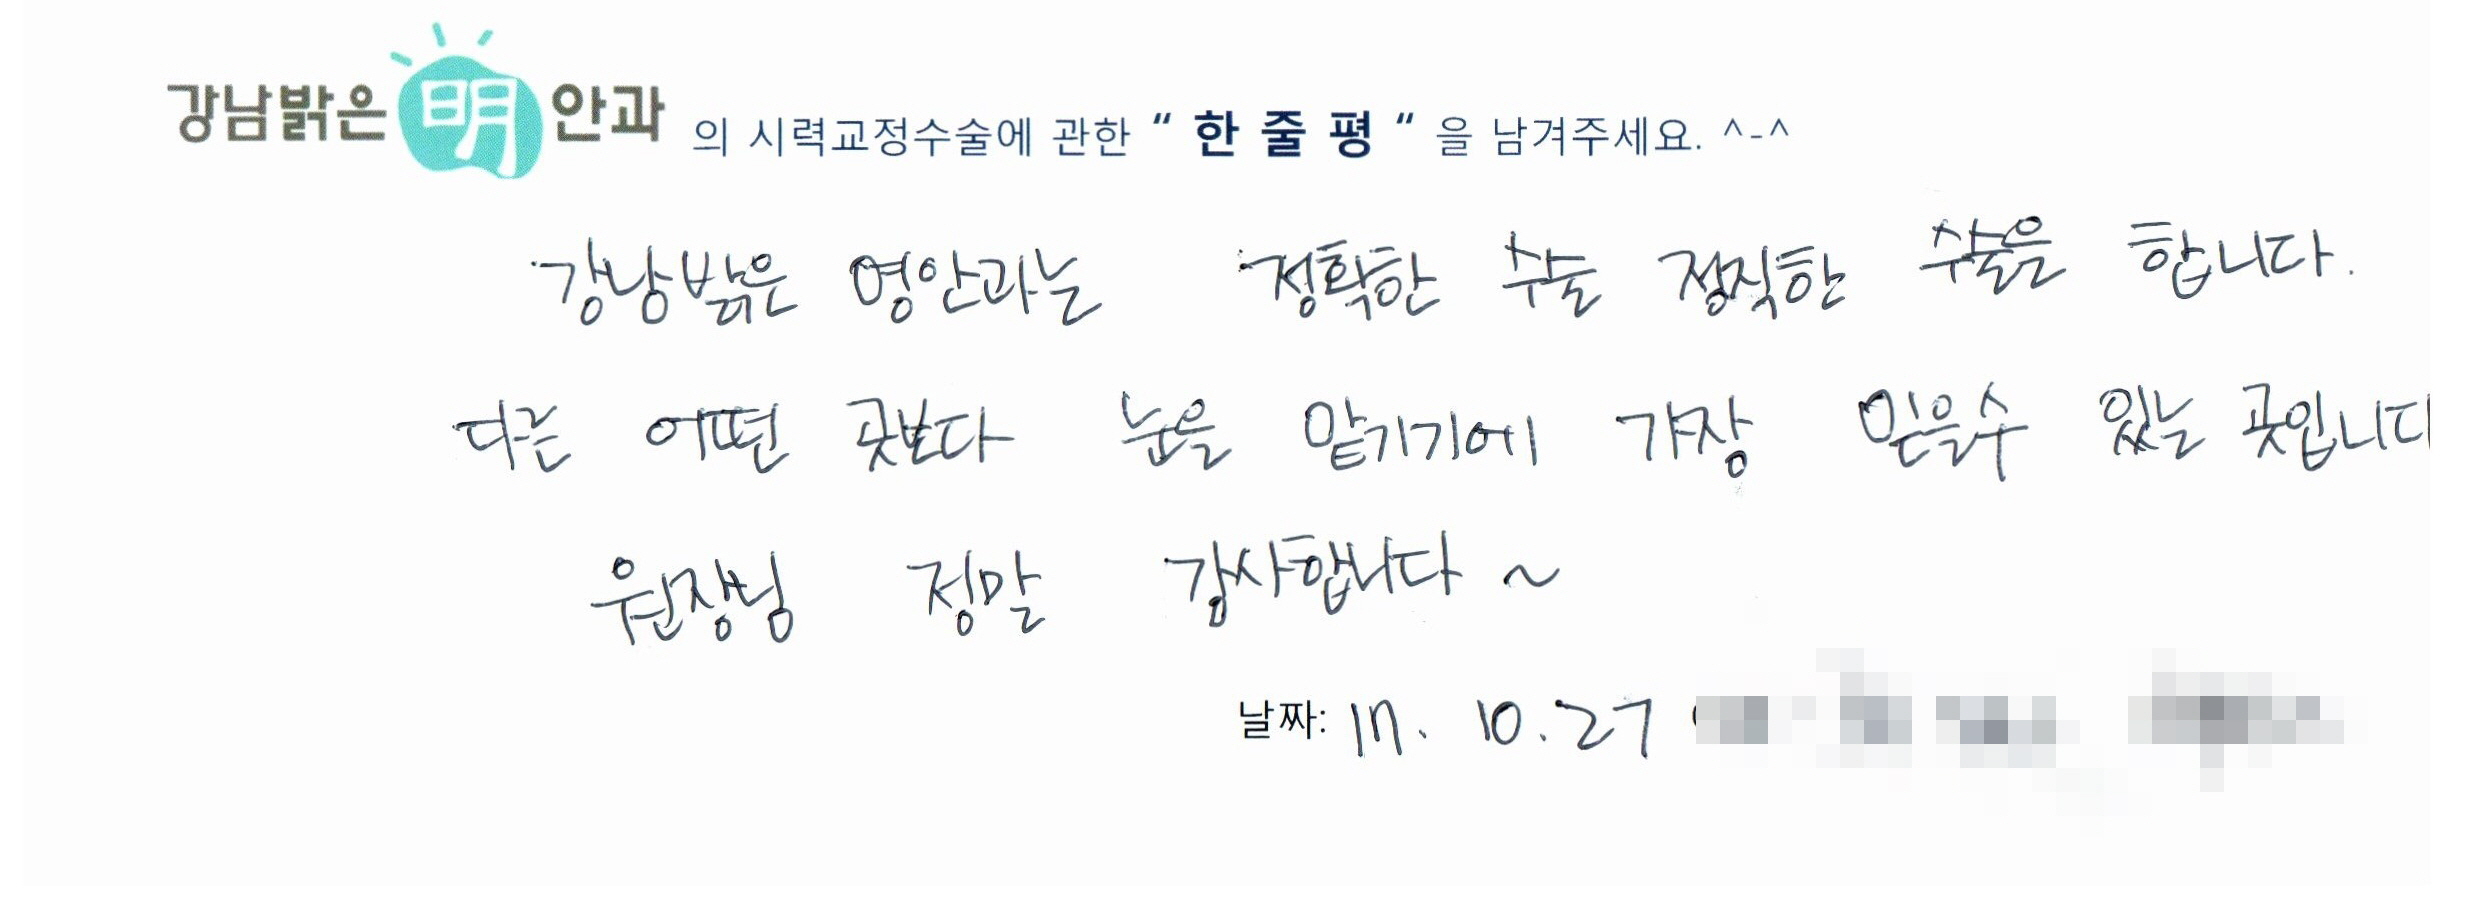 강남밝은 明 안과 의 시력교정수술에 관한 “ 한 줄 평 “ 을 남겨주세요. ^-^
강남밝은 명안과는 정확한 수술 정직한 수술을 합니다.
다른 어떤 곳보다 눈을 맡기기에 가장 믿을수 있는 곳입니다
원장님 정말 감사합니다 ~
날짜: 17. 10. 27